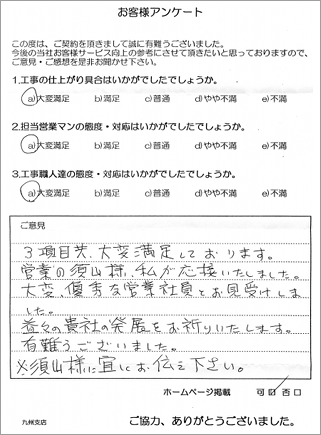 お客様アンケート
この度は、ご契約を頂きまして誠に有難うございました。
今後の当社お客様サービス向上の参考にさせて頂きたいと思っておりますので、
ご意見・ご感想を是非お聞かせ下さい。
1.工事の仕上がり具合はいかがでしたでしょうか。
a)大変満足 b)満足 c)普通 d)やや不満 e)不満
2.担当営業マンの態度・対応はいかがでしたでしょうか。
a)大変満足 b)満足 c)普通 d)やや不満 e)不満
3.工事職人達の態度・対応はいかがでしたでしょうか。
a)大変満足 b)満足 c)普通 d)やや不満 e)不満
ご意見
3項目共、大変満足しております。
営業の須山様、私が応接いたしました。
大変、優秀な営業社員とお見受けしま
した。
益々の貴社の発展をお祈りいたします。
有難うございました。
※須山様に宜しくお伝え下さい。
ホームページ掲載 可 口 否 口
九州支店
ご協力、ありがとうございました。